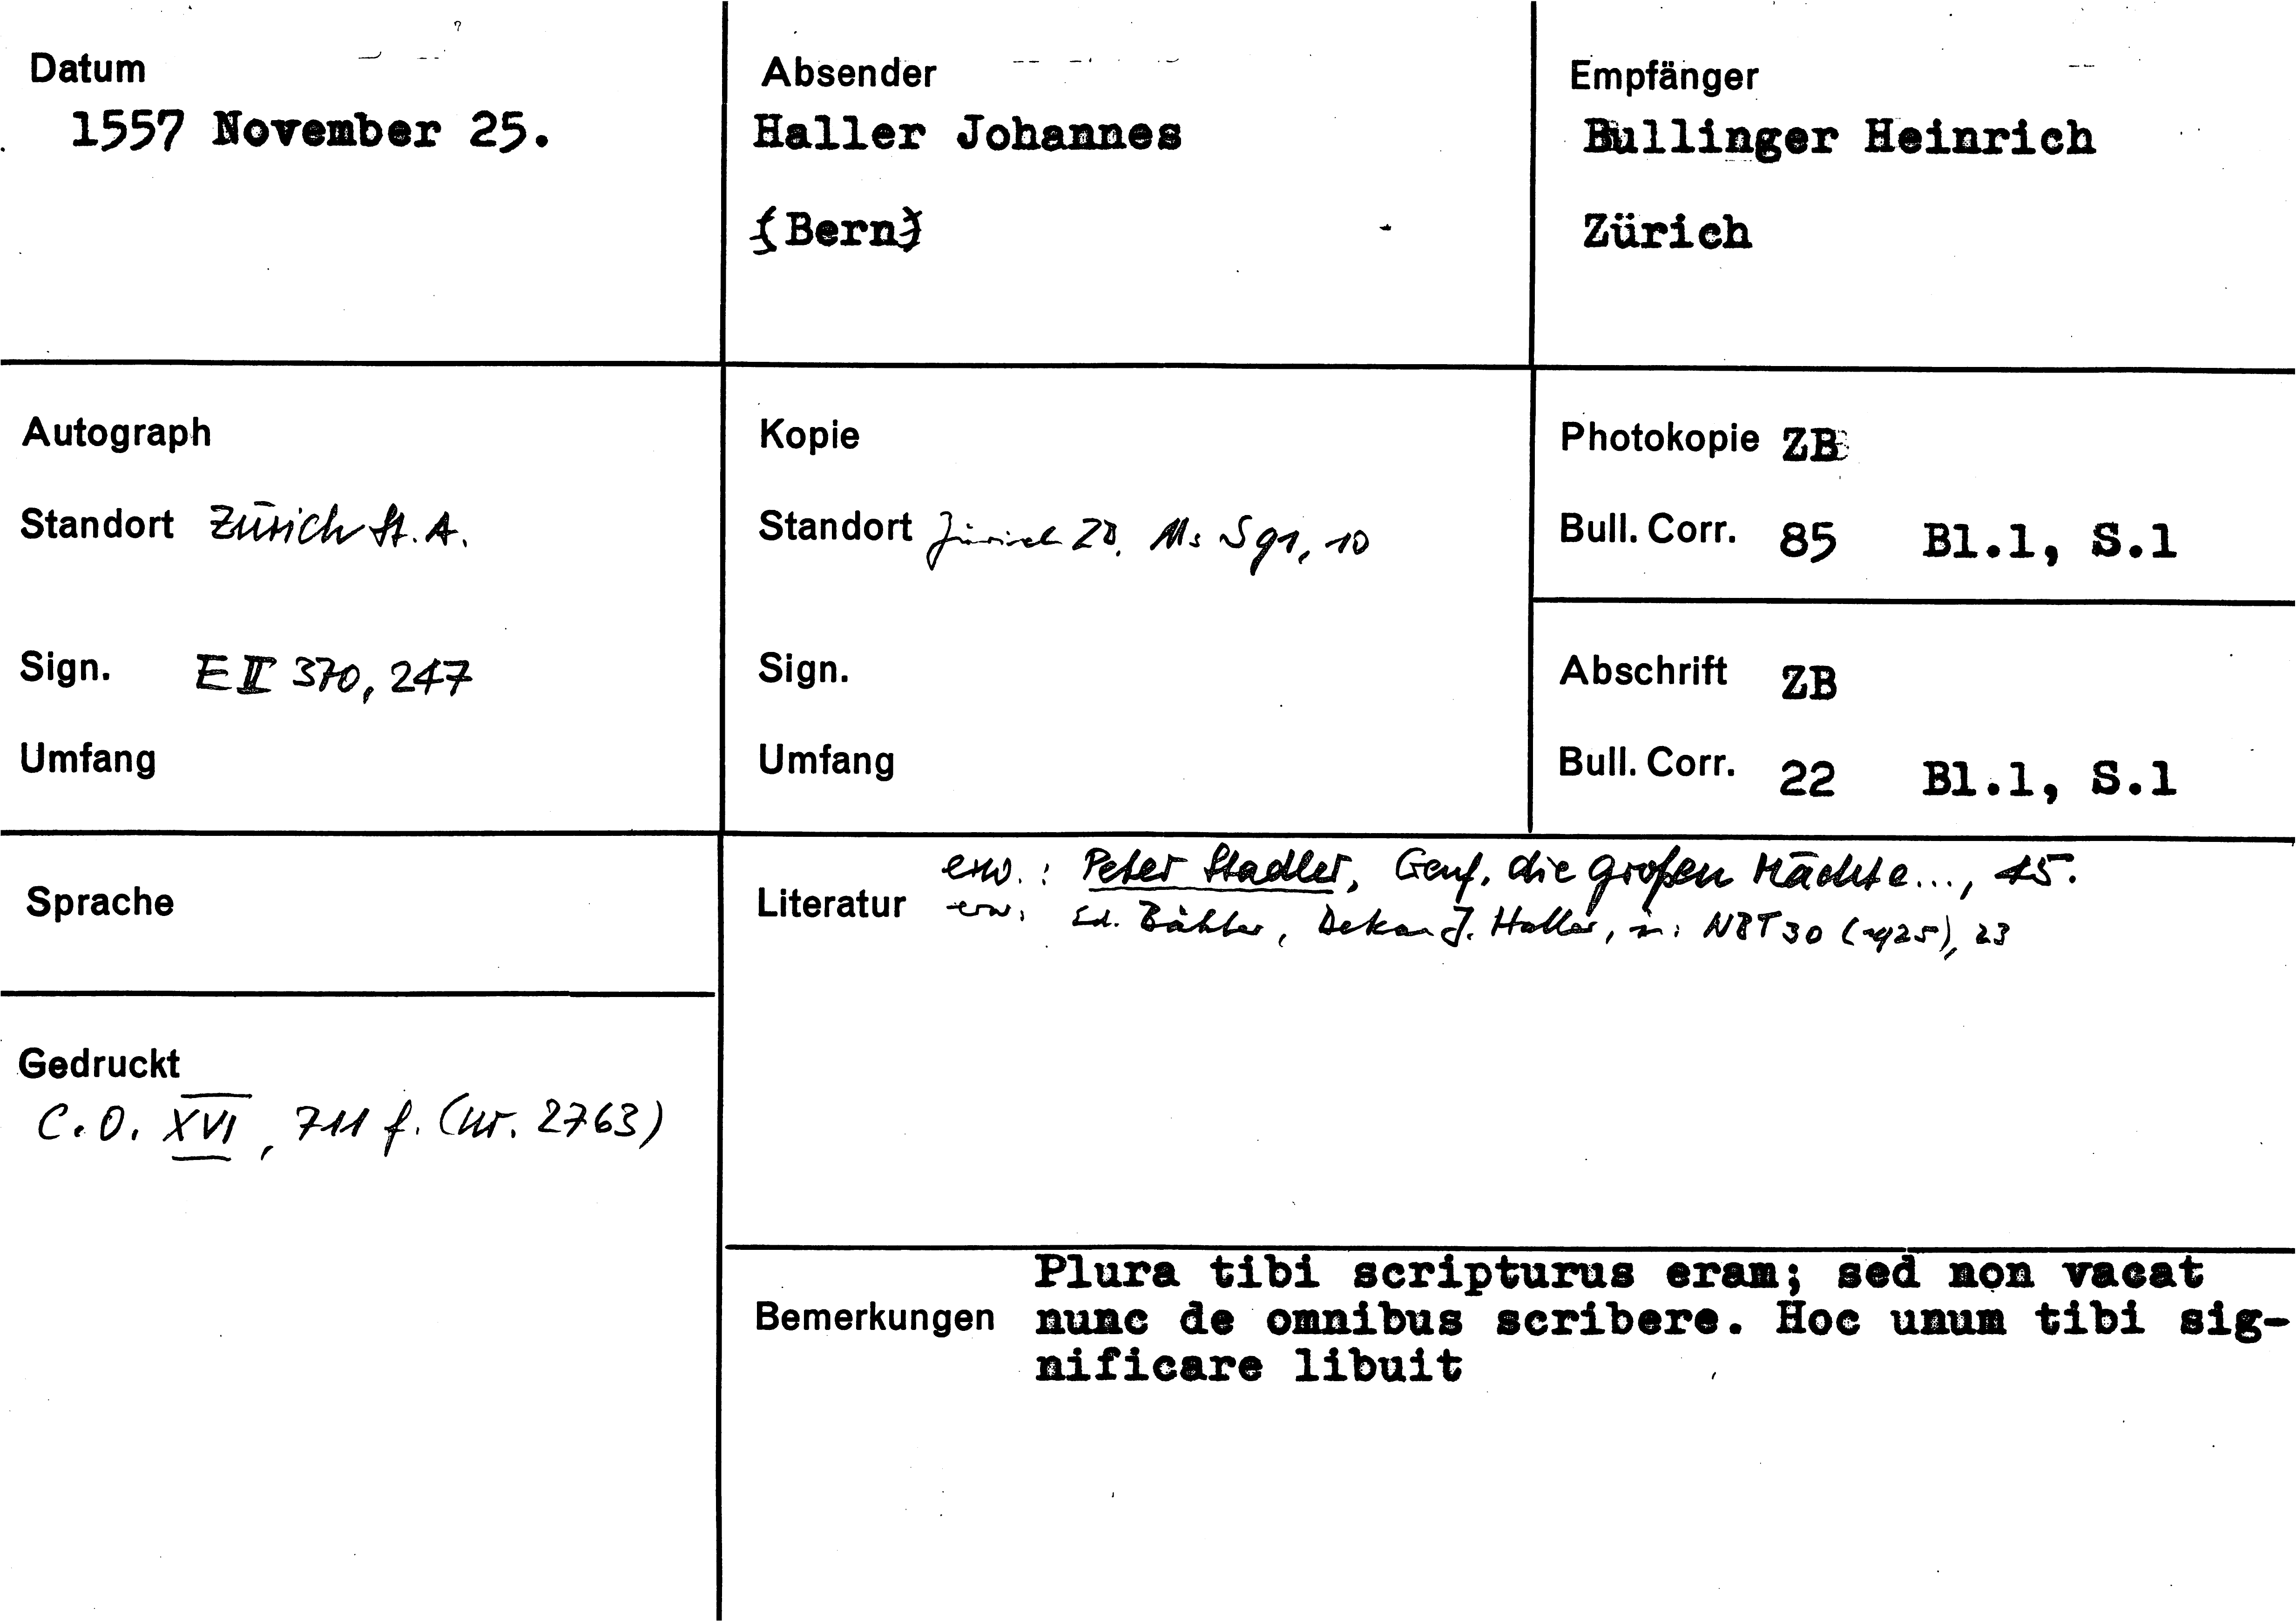 Datum
1557 November 25.
Absender
Haller Johannes
[Bern]
Empfänger
Bullinger Heinrich
Zürich
Autograph
Standort Zürich St. A.
Sign. E II 370, 247
Umfang
Kopie
Standort Zürich ZB, Ms S 91, 10
Sign.
Umfang
Photokopie ZB
Bull. Corr. 85 Bl.1, S.1
Abschrift ZB
Bull. Corr. 22 Bl.1, S.1
Sprache
Gedruckt
C.O. XVI, 711 f. (Nr. 2763)
Literatur
erw.: Peter Stadler, Genf, die großen Mächte..., 45.
erw. Ed. Bähler, Dekan J. Haller, in: NBT 30 (1925), 23
Bemerkungen
Plura tibi scripturus eram; sed non vacat
nunc de omnibus scribere. Hoc unum tibi sig-
nificare libuit